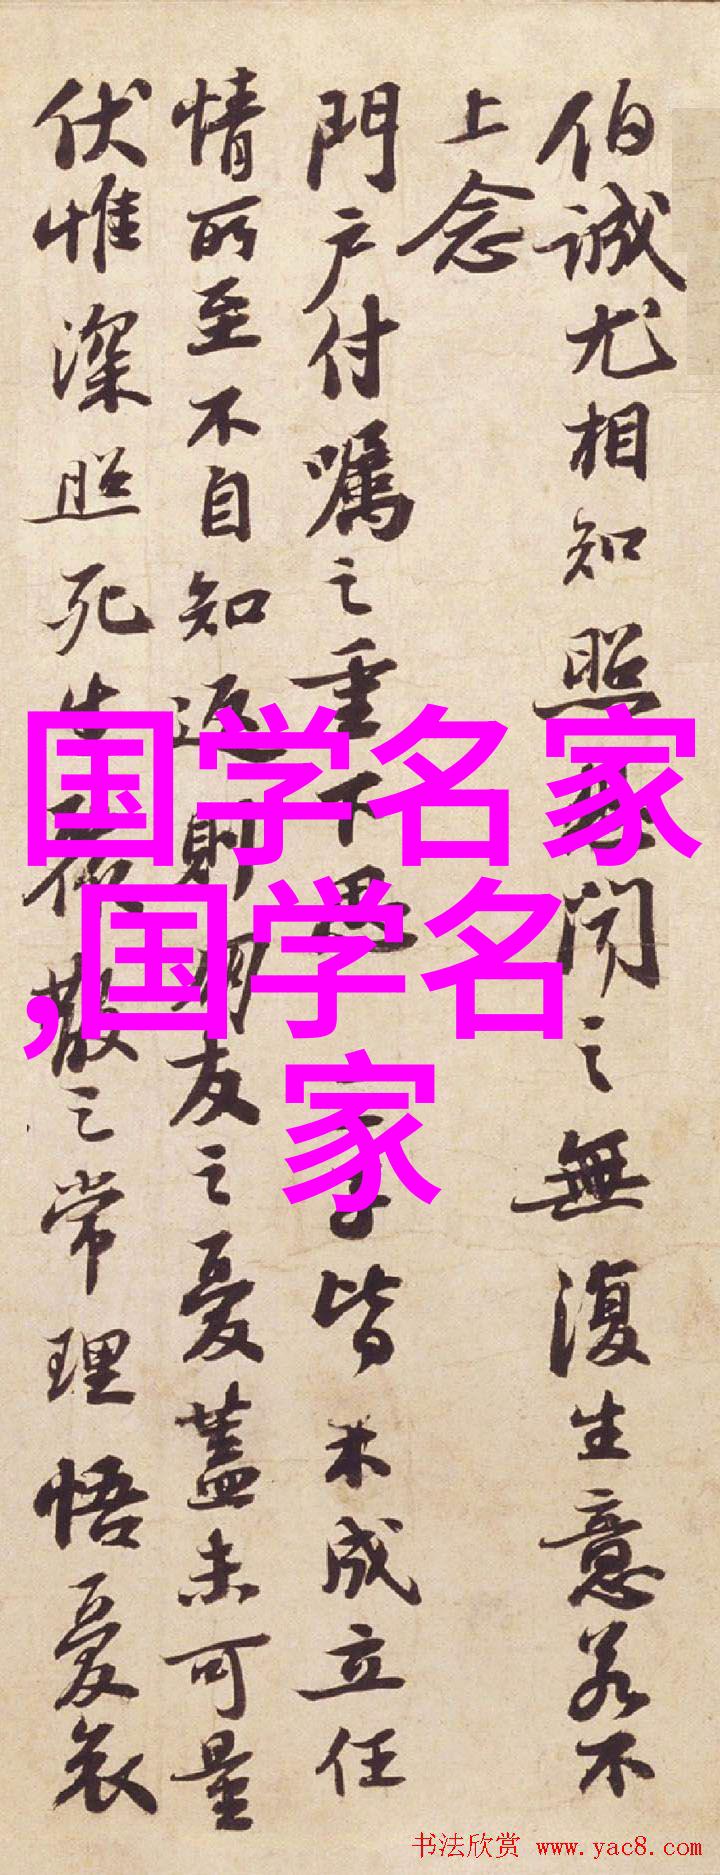 伯誠尤相知照
聞之無復生意若不
上念
門户付嘱之重下愚
子皆未成立任
情所至不自知返則朋友之憂蓋未可量
伏惟深照死生聚散之常理悟憂哀
国学名家
,国学名
家
书法欣赏 www.yac8.com